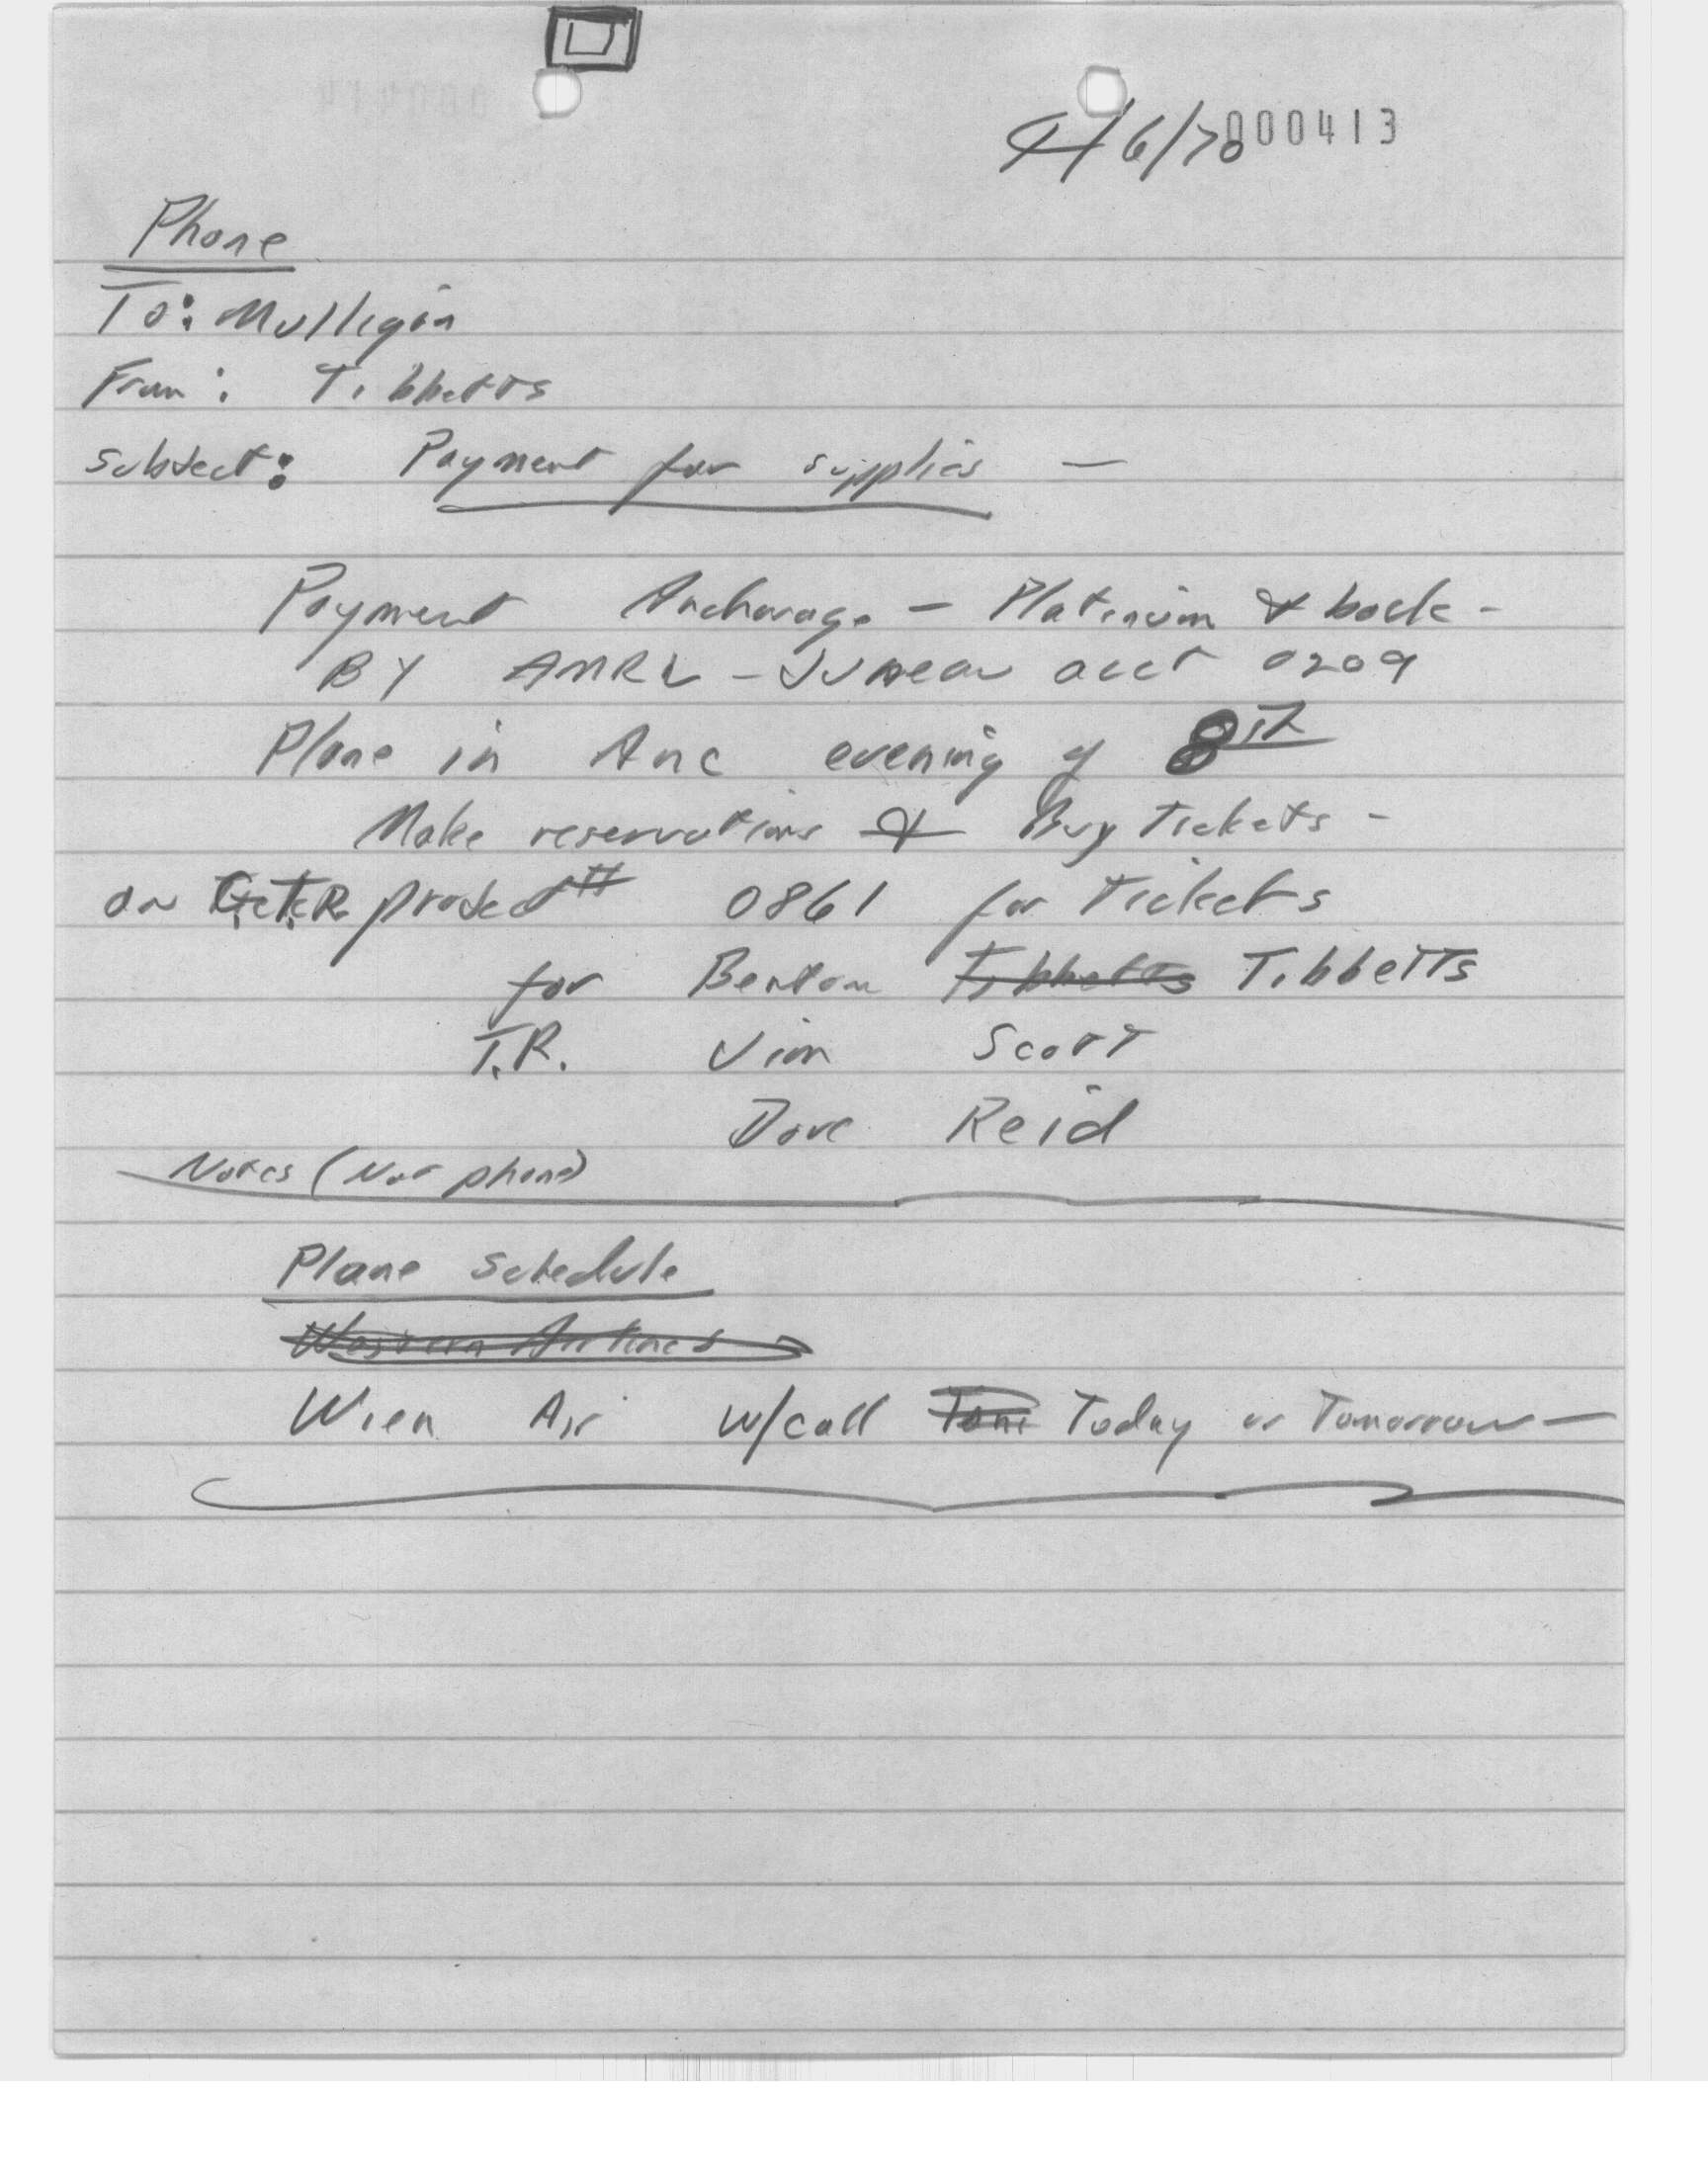 4/6/78
000413
Phone
To: Mulligan
From: Tibbetts
Subject: Payment for supplies —
Payment Anchorage — Platinum & back -
BY AMRL - Juneau acct 0209
Plane in Anc evening of 8th
Make reservations & Buy Tickets -
on project # 0861 for Tickets
for Benton Tibbetts Tibbetts
T.R. Jim Scott
Dave Reid
Notes (Not phone)
Plane Schedule
Western Airlines
Wien Air w/call Today or Tomorrow —